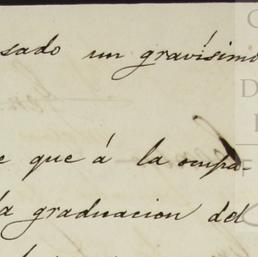 sado un gravísimo
que á la ocupa-
la graduacion del